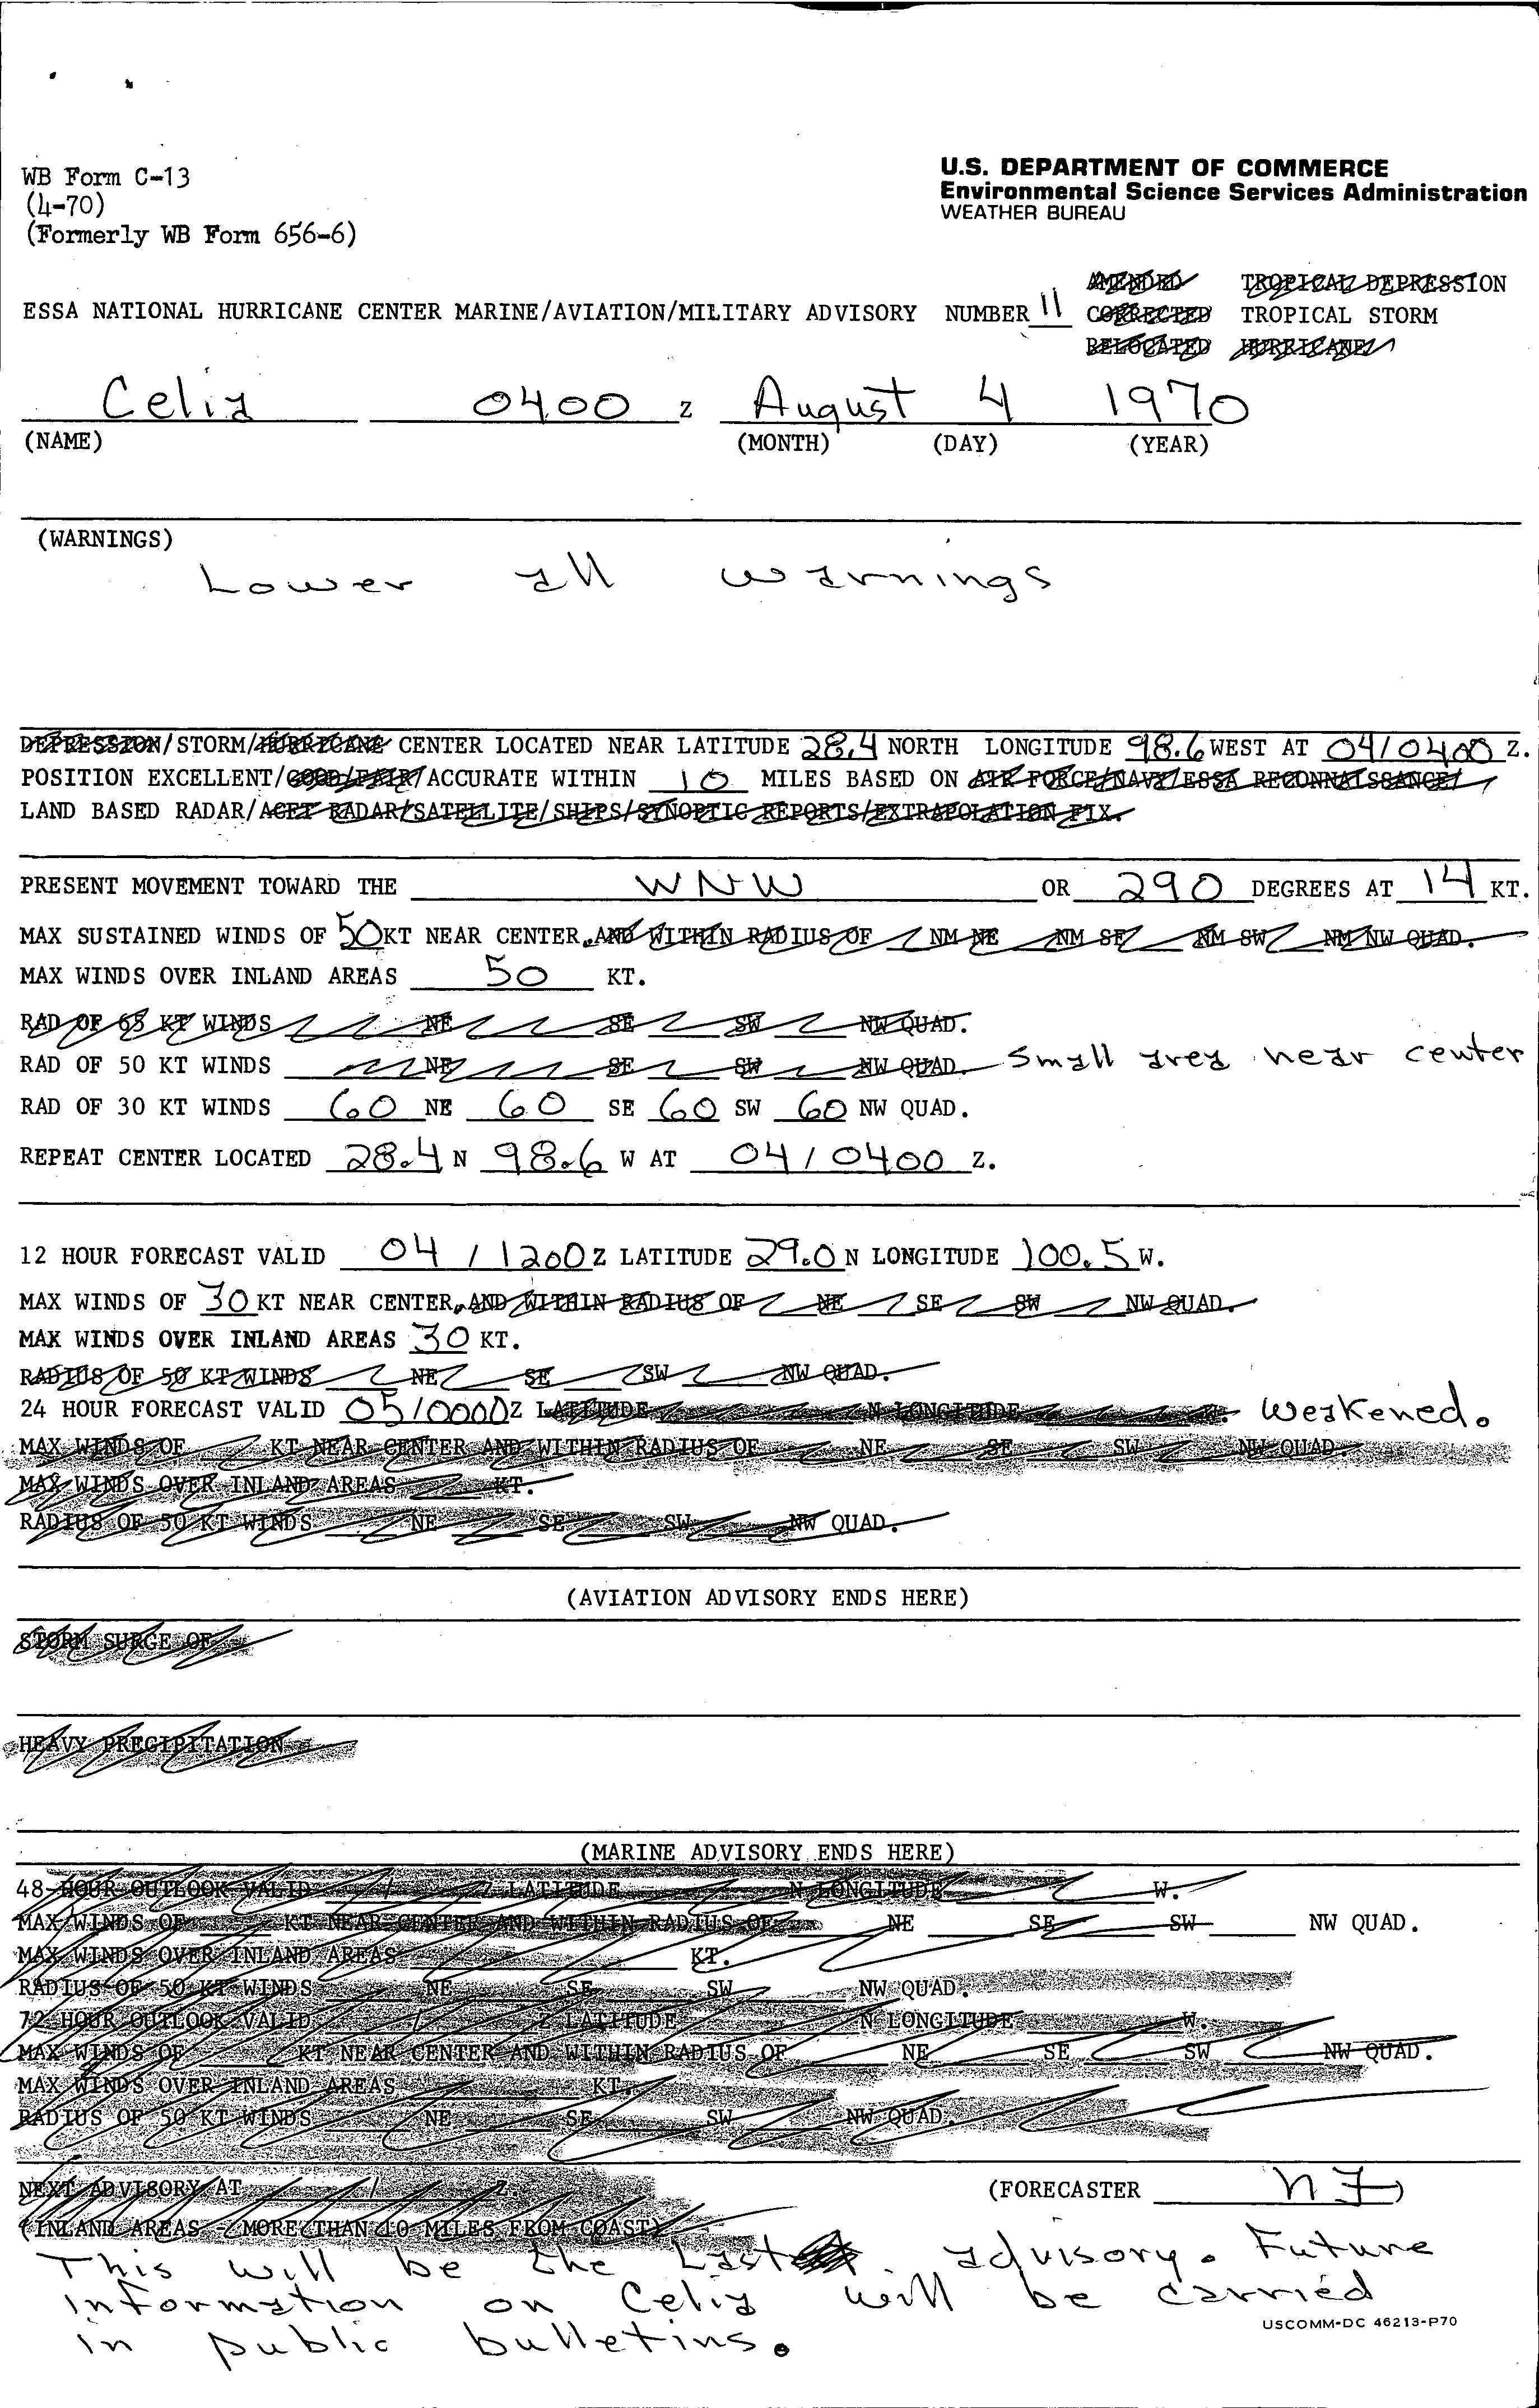 WB Form C-13
(4-70)
(Formerly WB Form 656-6)
U.S. DEPARTMENT OF COMMERCE
Environmental Science Services Administration
WEATHER BUREAU
AMENDED TROPICAL DEPRESSION
ESSA NATIONAL HURRICANE CENTER MARINE/AVIATION/MILITARY ADVISORY NUMBER 11 CORRECTED TROPICAL STORM
RELOCATED HURRICANE
Celia 0400 Z August 4 1970
(NAME) (MONTH) (DAY) (YEAR)
(WARNINGS)
Lower all warnings
DEPRESSION/STORM/HURRICANE CENTER LOCATED NEAR LATITUDE 28.4 NORTH LONGITUDE 98.6 WEST AT 04/0400 Z.
POSITION EXCELLENT/GOOD/FAIR/ACCURATE WITHIN 10 MILES BASED ON AIR FORCE/NAVY/ESSA RECONNAISSANCE/
LAND BASED RADAR/ACFT RADAR/SATELLITE/SHIPS/SYNOPTIC REPORTS/EXTRAPOLATION FIX.
PRESENT MOVEMENT TOWARD THE WNW OR 290 DEGREES AT 14 KT.
MAX SUSTAINED WINDS OF 50 KT NEAR CENTER. AND WITHIN RADIUS OF NM NE NM SE NM SW NM NW QUAD.
MAX WINDS OVER INLAND AREAS 50 KT.
RAD OF 65 KT WINDS NE SE SW NW QUAD.
RAD OF 50 KT WINDS NE SE SW NW QUAD. Small area near center
RAD OF 30 KT WINDS 60 NE 60 SE 60 SW 60 NW QUAD.
REPEAT CENTER LOCATED 28.4 N 98.6 W AT 04/0400 Z.
12 HOUR FORECAST VALID 04/1200 Z LATITUDE 29.0 N LONGITUDE 100.5 W.
MAX WINDS OF 30 KT NEAR CENTER. AND WITHIN RADIUS OF NE SE SW NW QUAD.
MAX WINDS OVER INLAND AREAS 30 KT.
RADIUS OF 50 KT WINDS NE SE SW NW QUAD.
24 HOUR FORECAST VALID 05/0000 Z LATITUDE N LONGITUDE W. Weakened.
MAX WINDS OF KT NEAR CENTER AND WITHIN RADIUS OF NE SE SW NW QUAD
MAX WINDS OVER INLAND AREAS KT.
RADIUS OF 50 KT WINDS NE SE SW NW QUAD.
(AVIATION ADVISORY ENDS HERE)
STORM SURGE OF
HEAVY PRECIPITATION
(MARINE ADVISORY ENDS HERE)
48 HOUR OUTLOOK VALID / Z LATITUDE N LONGITUDE W.
MAX WINDS OF KT NEAR CENTER AND WITHIN RADIUS OF NE SE SW NW QUAD.
MAX WINDS OVER INLAND AREAS KT.
RADIUS OF 50 KT WINDS NE SE SW NW QUAD.
72 HOUR OUTLOOK VALID / Z LATITUDE N LONGITUDE W.
MAX WINDS OF KT NEAR CENTER AND WITHIN RADIUS OF NE SE SW NW QUAD.
MAX WINDS OVER INLAND AREAS KT.
RADIUS OF 50 KT WINDS NE SE SW NW QUAD.
NEXT ADVISORY AT / Z. (FORECASTER
(INLAND AREAS - MORE THAN 10 MILES FROM COAST)
This will be the Last advisory. Future
information on Celia will be carried
in public bulletins.
USCOMM-DC 46213-P70